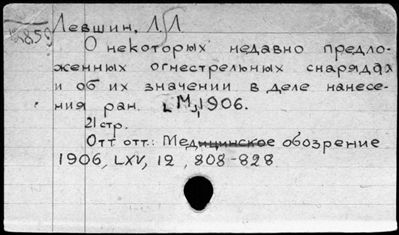 Левшин, Л Л
О некоторых недавно предло-
женных огнестрельных снарядах
и об их значении в деле нанесе-
ния ран. М, 1906.
21 стр.
Отт отт.: Медицинское обозрение
1906, LXV, 12, 808-828